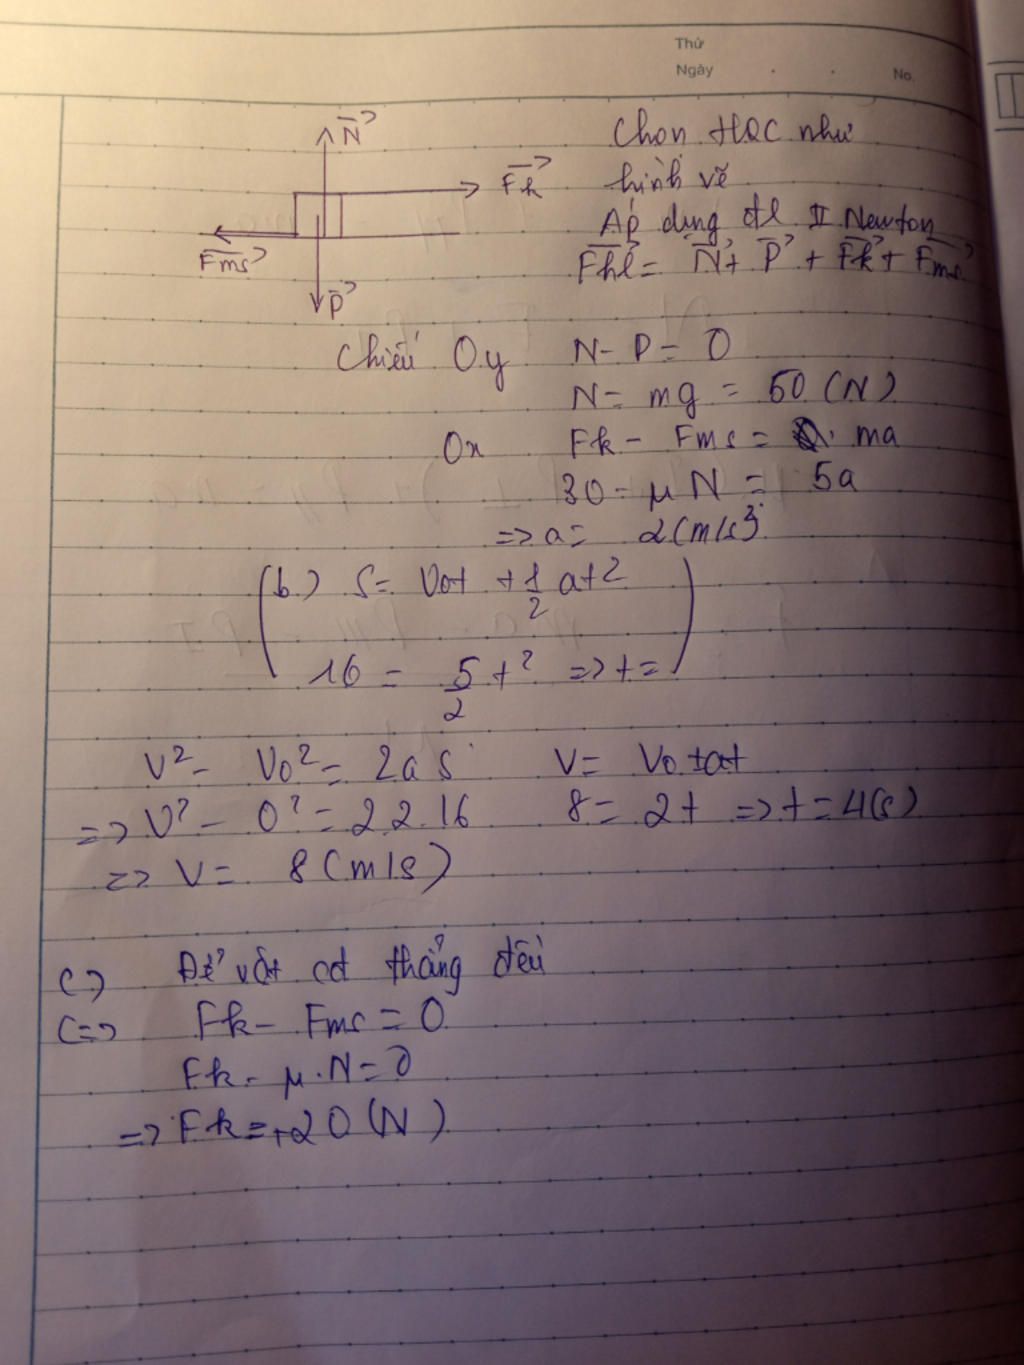 Thứ
Ngày . . No.
N Chọn HQC như
Fk hình vẽ
Áp dụng đl II Newton
Fms Fhl = N + P + Fk + Fms
P
Chiếu Oy N - P = 0
N = mg = 50 (N)
Ox Fk - Fms = ma
30 - μN = 5a
=> a = 2 (m/s²)
(b.) S = Vot + 1/2 at2
16 = 5/2 t² => t = )
V² - Vo² = 2as V = Vo + at
=> V² - 0² = 2.2.16 8 = 2t => t = 4(s)
=> V = 8 (m/s)
c) Để vật cđ thẳng đều
<=> Fk - Fms = 0
Fk - μ.N = 0
=> Fk = +20 (N)